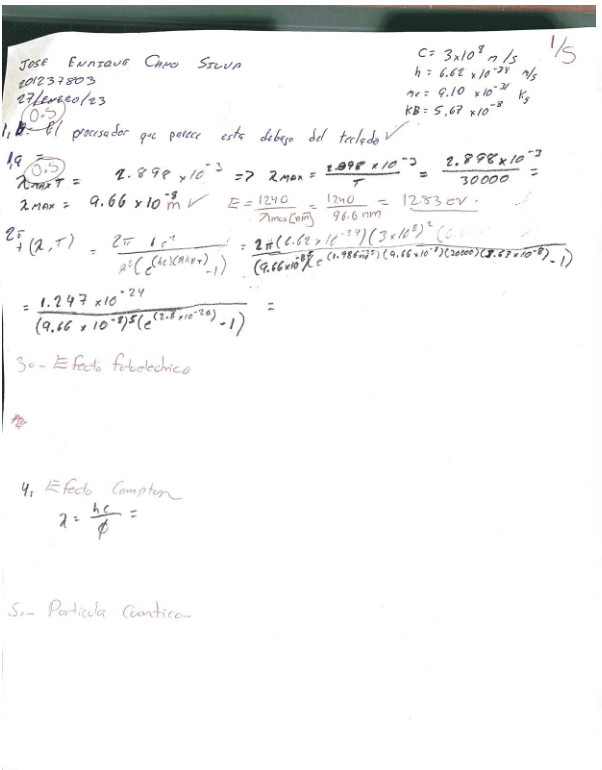 JOSE ENRIQUE CANO SILVA
201237803
27/ENERO/23
C = 3x10⁸ m/s
h = 6.62 x10⁻³⁴ m/s
me = 9.10 x10⁻³¹ Kg
KB = 5,67 x10⁻⁸
1/5
(0.5)
1, B- El procesador que parece esta debajo del teclado ✓
1,a (0.5)
λmaxT = 2.898 x10⁻³ => λmax = 2.898 x10⁻³ / T = 2.898x10⁻³ / 30000 =
λmax = 9.66 x10⁻⁸ m ✓ E = 1240 / λmax[nm] = 1240 / 96.6 nm = 12.83 eV.
(λ,T) = 2π / λ⁵(e^(hc)(λKBT) -1) = 2π(6.62 x10⁻³⁴)(3x10⁸)² / (9.66x10⁻⁸)⁵(e (9.66 x10⁻⁸)(30000) -1)
= 1.247 x10⁻²⁴ / (9.66 x 10⁻⁸)⁵(e^(2.8 x10⁻²⁶) -1) =
30- Efecto fotoelectrico
4, Efecto Compton
λ = hc / ϕ =
5.- Particula Cuantica